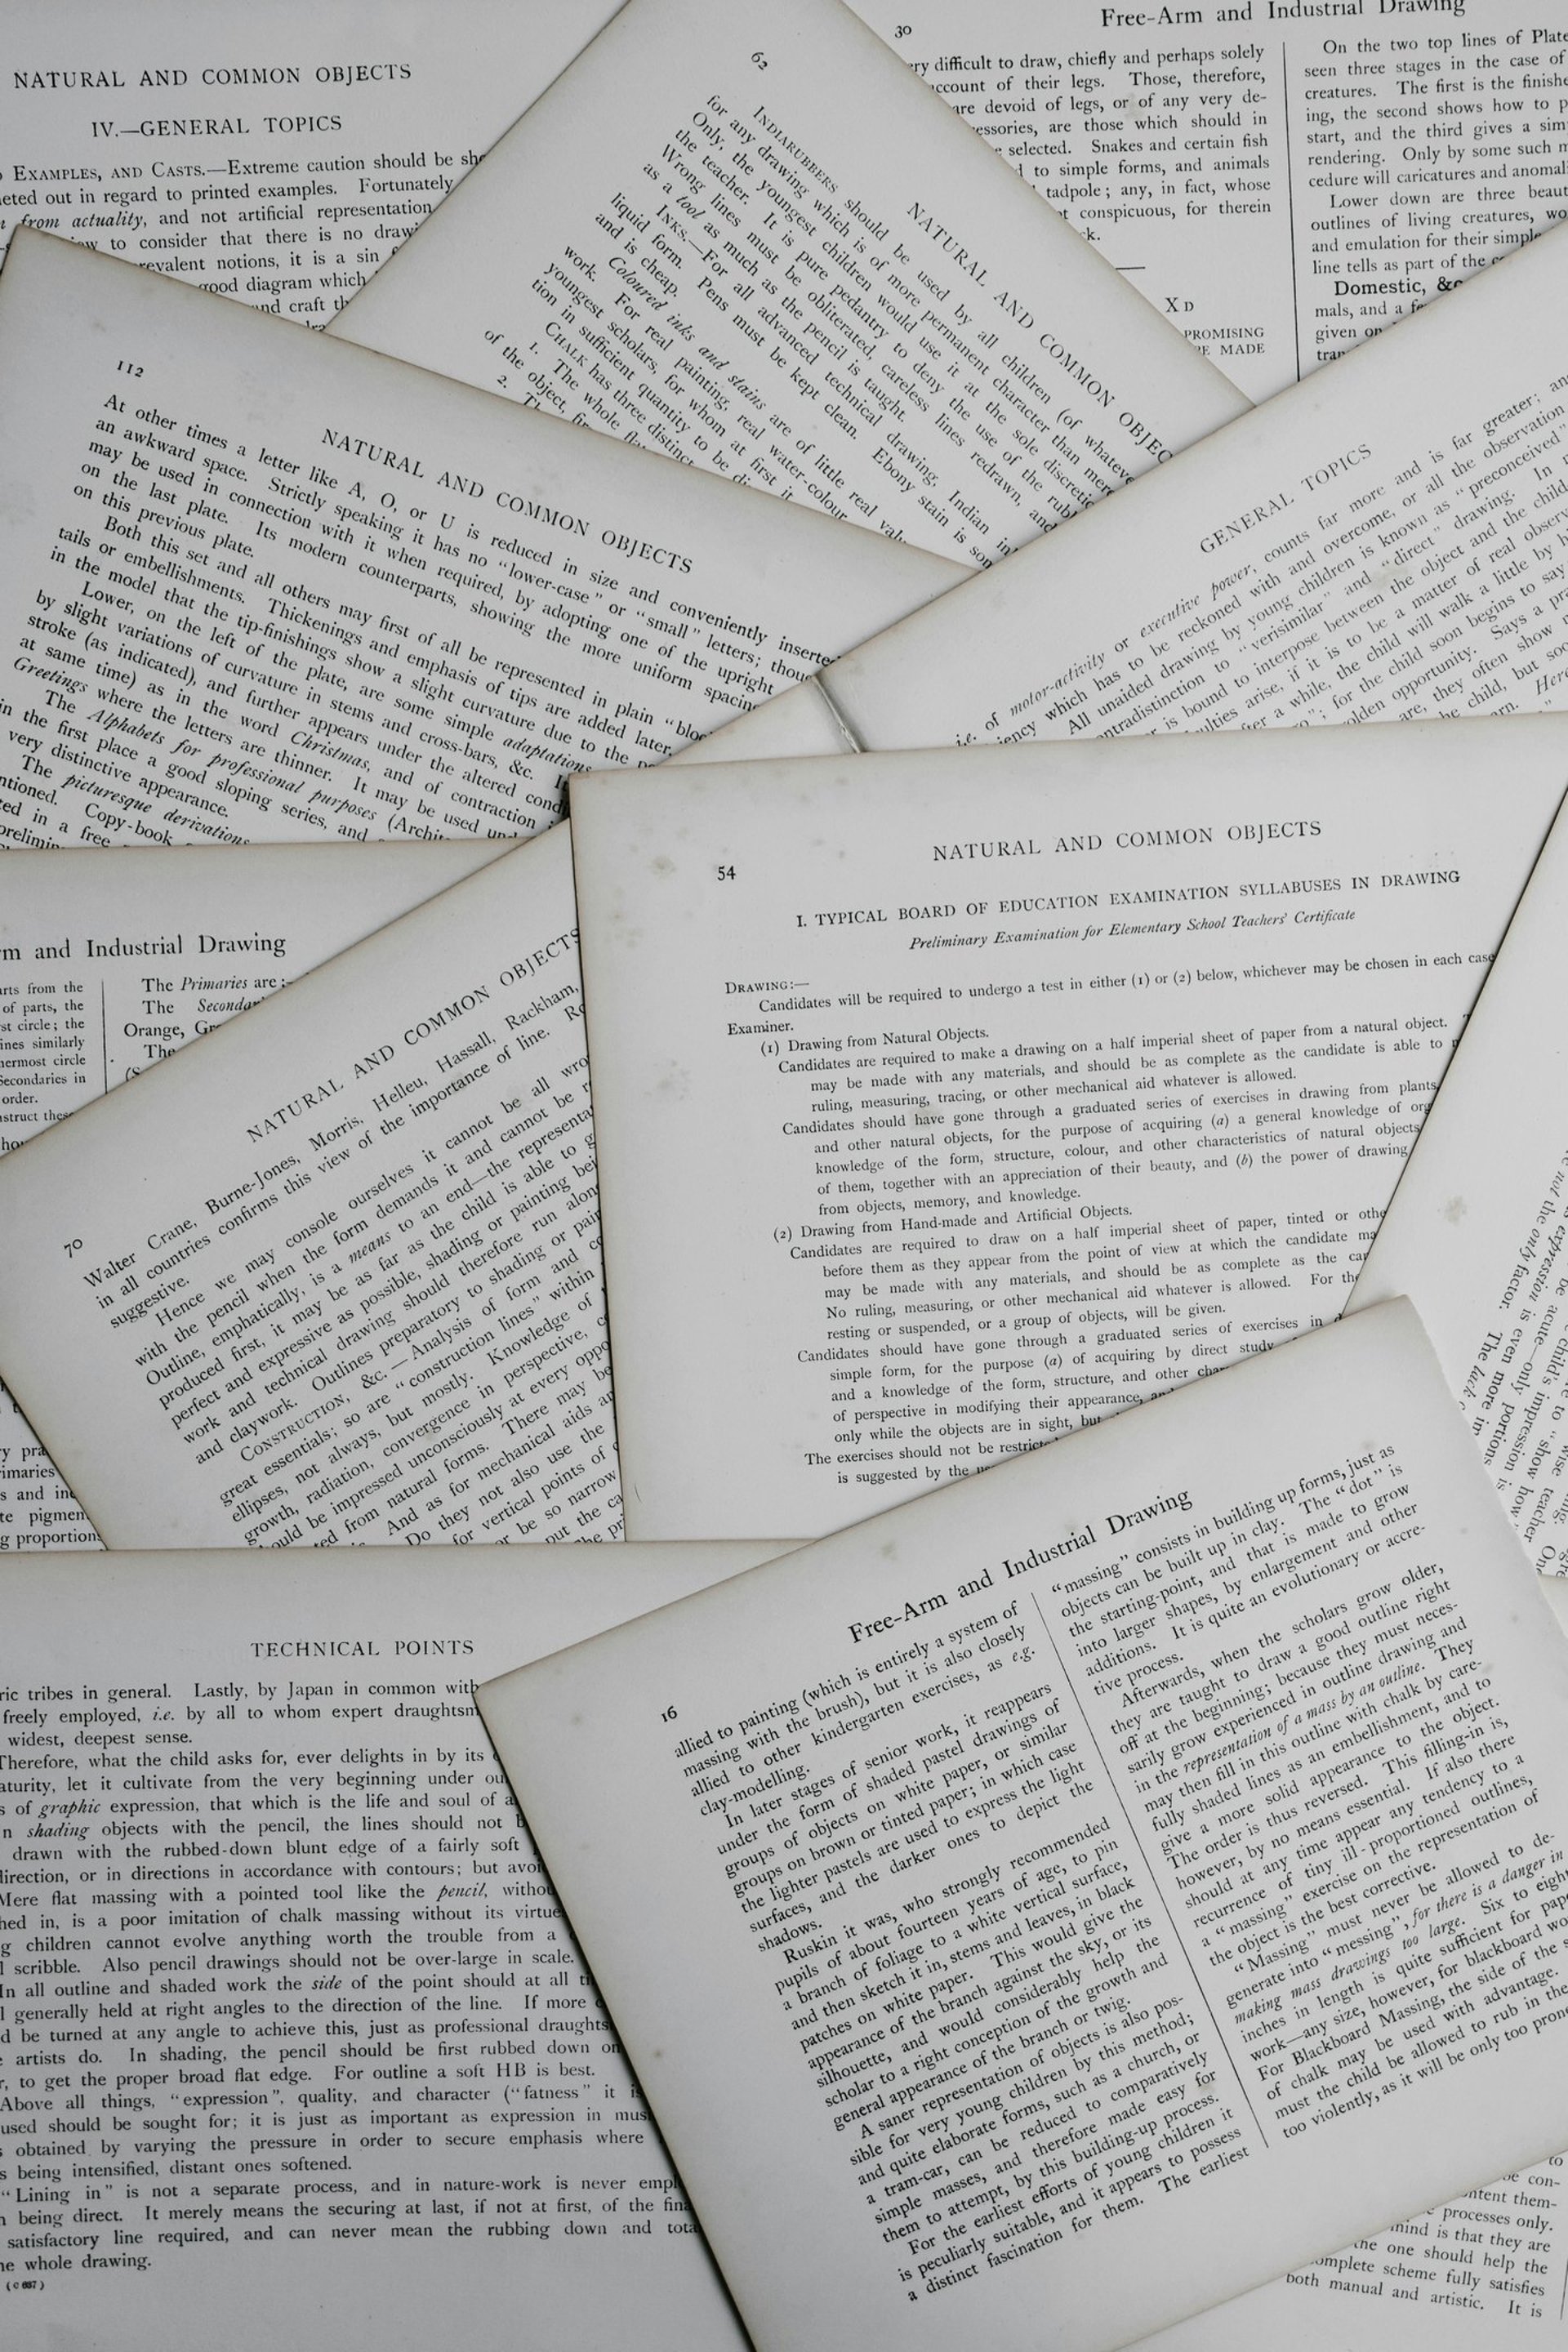 NATURAL AND COMMON OBJECTS
IV.—GENERAL TOPICS
EXAMPLES, AND CASTS.—Extreme caution should be
out in regard to printed examples. Fortunately
from actuality, and not artificial representation
to consider that there is no
notions, it is a sin
good diagram which
and craft
62
NATURAL AND COMMON
INDIARUBBERS should be used by all children (of
for any drawing which is of more permanent character than
Only, the youngest children would use it at the sole
the teacher. It is pure pedantry to deny the use of the
Wrong lines must be obliterated, careless lines redrawn, and
as a tool as much as the pencil is taught.
INKS.—For all advanced technical drawing, Indian
liquid form. Pens must be kept clean. Ebony stain is
and is cheap.
Coloured inks and stains are of little real
work. For real painting, real water-colour
youngest scholars, for whom at first it
tion in sufficient quantity to be
CHALK has three distinct
1. The whole
of the object,
2.
30
Free-Arm and Industrial Drawing
difficult to draw, chiefly and perhaps solely
account of their legs. Those, therefore,
are devoid of legs, or of any very de-
are those which should in
selected. Snakes and certain fish
to simple forms, and animals
tadpole; any, in fact, whose
conspicuous, for therein
X D
PROMISING
MADE
On the two top lines of
seen three stages in the case of
creatures. The first is the
ing, the second shows how to
start, and the third gives a
rendering. Only by some such
cedure will caricatures and
Lower down are three
outlines of living creatures,
and emulation for their simple
line tells as part of the
Domestic,
mals, and a
given on
112
NATURAL AND COMMON OBJECTS
At other times a letter like A, O, or U is reduced in size and conveniently
an awkward space. Strictly speaking it has no "lower-case" or "small" letters;
may be used in connection with it when required, by adopting one of the upright
on the last plate. Its modern counterparts, showing the more uniform
on this previous plate.
Both this set and all others may first of all be represented in plain
tails or embellishments. Thickenings and emphasis of tips are added later.
in the model that the tip-finishings show a slight curvature due to the
Lower, on the left of the plate, are some simple adaptations
by slight variations of curvature in stems and cross-bars, &c.
stroke (as indicated), and further appears under the altered
at same time) as in the word Christmas, and of contraction
Greetings where the letters are thinner. It may be used
The Alphabets for professional purposes
in the first place a good sloping series, and
very distinctive appearance.
The picturesque derivations
Copy-book
in a free
GENERAL TOPICS
i.e. of motor-activity or executive power, counts far more and is far greater;
which has to be reckoned with and overcome, or all the observation
All unaided drawing by young children is known as "preconceived"
to "verisimilar" and "direct" drawing. In
is bound to interpose between the object and the
arise, if it is to be a matter of real
a while, the child will walk a little by
for the child soon begins to say
opportunity. Says a
are, they often show
child, but
Here
and Industrial Drawing
from the
of parts, the
circle; the
similarly
circle
Secondaries in
order.
The Primaries are:—
The
Orange,
The
70
NATURAL AND COMMON OBJECTS
Walter Crane, Burne-Jones, Morris, Helleu, Hassall, Rackham,
in all countries confirms this view of the importance of line.
suggestive.
Hence we may console ourselves it cannot be all
with the pencil when the form demands it and cannot be
Outline, emphatically, is a means to an end—the
produced first, it may be as far as the child is able to
perfect and expressive as possible, shading or painting
work and technical drawing should therefore run
and claywork. Outlines preparatory to shading or
CONSTRUCTION, &c.—Analysis of form and
great essentials; so are "construction lines" within
ellipses, not always, but mostly. Knowledge of
growth, radiation, convergence in perspective,
be impressed unconsciously at every
from natural forms. There may be
And as for mechanical aids
Do they not also use the
for vertical points of
be so narrow
put the
54
NATURAL AND COMMON OBJECTS
I. TYPICAL BOARD OF EDUCATION EXAMINATION SYLLABUSES IN DRAWING
Preliminary Examination for Elementary School Teachers' Certificate
DRAWING:—
Candidates will be required to undergo a test in either (1) or (2) below, whichever may be chosen in each case
Examiner.
(1) Drawing from Natural Objects.
Candidates are required to make a drawing on a half imperial sheet of paper from a natural object.
may be made with any materials, and should be as complete as the candidate is able to
ruling, measuring, tracing, or other mechanical aid whatever is allowed.
Candidates should have gone through a graduated series of exercises in drawing from plants
and other natural objects, for the purpose of acquiring (a) a general knowledge of
knowledge of the form, structure, colour, and other characteristics of natural objects
of them, together with an appreciation of their beauty, and (b) the power of drawing
from objects, memory, and knowledge.
(2) Drawing from Hand-made and Artificial Objects.
Candidates are required to draw on a half imperial sheet of paper, tinted or
before them as they appear from the point of view at which the candidate
may be made with any materials, and should be as complete as the
No ruling, measuring, or other mechanical aid whatever is allowed. For the
resting or suspended, or a group of objects, will be given.
Candidates should have gone through a graduated series of exercises in
simple form, for the purpose (a) of acquiring by direct study
and a knowledge of the form, structure, and other
of perspective in modifying their appearance,
only while the objects are in sight, but
The exercises should not be
is suggested by the
TECHNICAL POINTS
tribes in general. Lastly, by Japan in common with
freely employed, i.e. by all to whom expert
widest, deepest sense.
Therefore, what the child asks for, ever delights in by its
let it cultivate from the very beginning under
of graphic expression, that which is the life and soul of
shading objects with the pencil, the lines should not
drawn with the rubbed-down blunt edge of a fairly soft
direction, or in directions in accordance with contours; but
Mere flat massing with a pointed tool like the pencil,
in, is a poor imitation of chalk massing without its
children cannot evolve anything worth the trouble from a
scribble. Also pencil drawings should not be over-large in scale.
In all outline and shaded work the side of the point should at all
generally held at right angles to the direction of the line. If more
be turned at any angle to achieve this, just as professional
artists do. In shading, the pencil should be first rubbed down
to get the proper broad flat edge. For outline a soft HB is best.
Above all things, "expression", quality, and character ("fatness" it is
used should be sought for; it is just as important as expression in
obtained by varying the pressure in order to secure emphasis where
being intensified, distant ones softened.
"Lining in" is not a separate process, and in nature-work is never
being direct. It merely means the securing at last, if not at first, of the
satisfactory line required, and can never mean the rubbing down and
whole drawing.
16
Free-Arm and Industrial Drawing
allied to painting (which is entirely a system of
massing with the brush), but it is also closely
allied to other kindergarten exercises, as e.g.
clay-modelling.
In later stages of senior work, it reappears
under the form of shaded pastel drawings of
groups of objects on white paper, or similar
groups on brown or tinted paper; in which case
the lighter pastels are used to express the light
surfaces, and the darker ones to depict the
shadows.
Ruskin it was, who strongly recommended
pupils of about fourteen years of age, to pin
a branch of foliage to a white vertical surface,
and then sketch it in, stems and leaves, in black
patches on white paper. This would give the
appearance of the branch against the sky, or its
silhouette, and would considerably help the
scholar to a right conception of the growth and
general appearance of the branch or twig.
A saner representation of objects is also pos-
sible for very young children by this method;
and quite elaborate forms, such as a church, or
a tram-car, can be reduced to comparatively
simple masses, and therefore made easy for
them to attempt, by this building-up process.
For the earliest efforts of young children it
is peculiarly suitable, and it appears to possess
a distinct fascination for them. The earliest
"massing" consists in building up forms, just as
objects can be built up in clay. The "dot" is
the starting-point, and that is made to grow
into larger shapes, by enlargement and other
additions. It is quite an evolutionary or accre-
tive process.
Afterwards, when the scholars grow older,
they are taught to draw a good outline right
off at the beginning; because they must neces-
sarily grow experienced in outline drawing and
in the representation of a mass by an outline. They
may then fill in this outline with chalk by care-
fully shaded lines as an embellishment, and to
give a more solid appearance to the object.
The order is thus reversed. This filling-in is,
however, by no means essential. If also there
should at any time appear any tendency to a
recurrence of tiny ill-proportioned outlines,
a "massing" exercise on the representation of
the object is the best corrective.
"Massing" must never be allowed to de-
generate into "messing", for there is a danger in
making mass drawings too large. Six to eight
inches in length is quite sufficient for
work—any size, however, for blackboard
For Blackboard Massing, the side of the
of chalk may be used with advantage.
must the child be allowed to rub in the
too violently, as it will be only too prone
processes only.
mind is that they are
the one should help the
complete scheme fully satisfies
both manual and artistic. It is